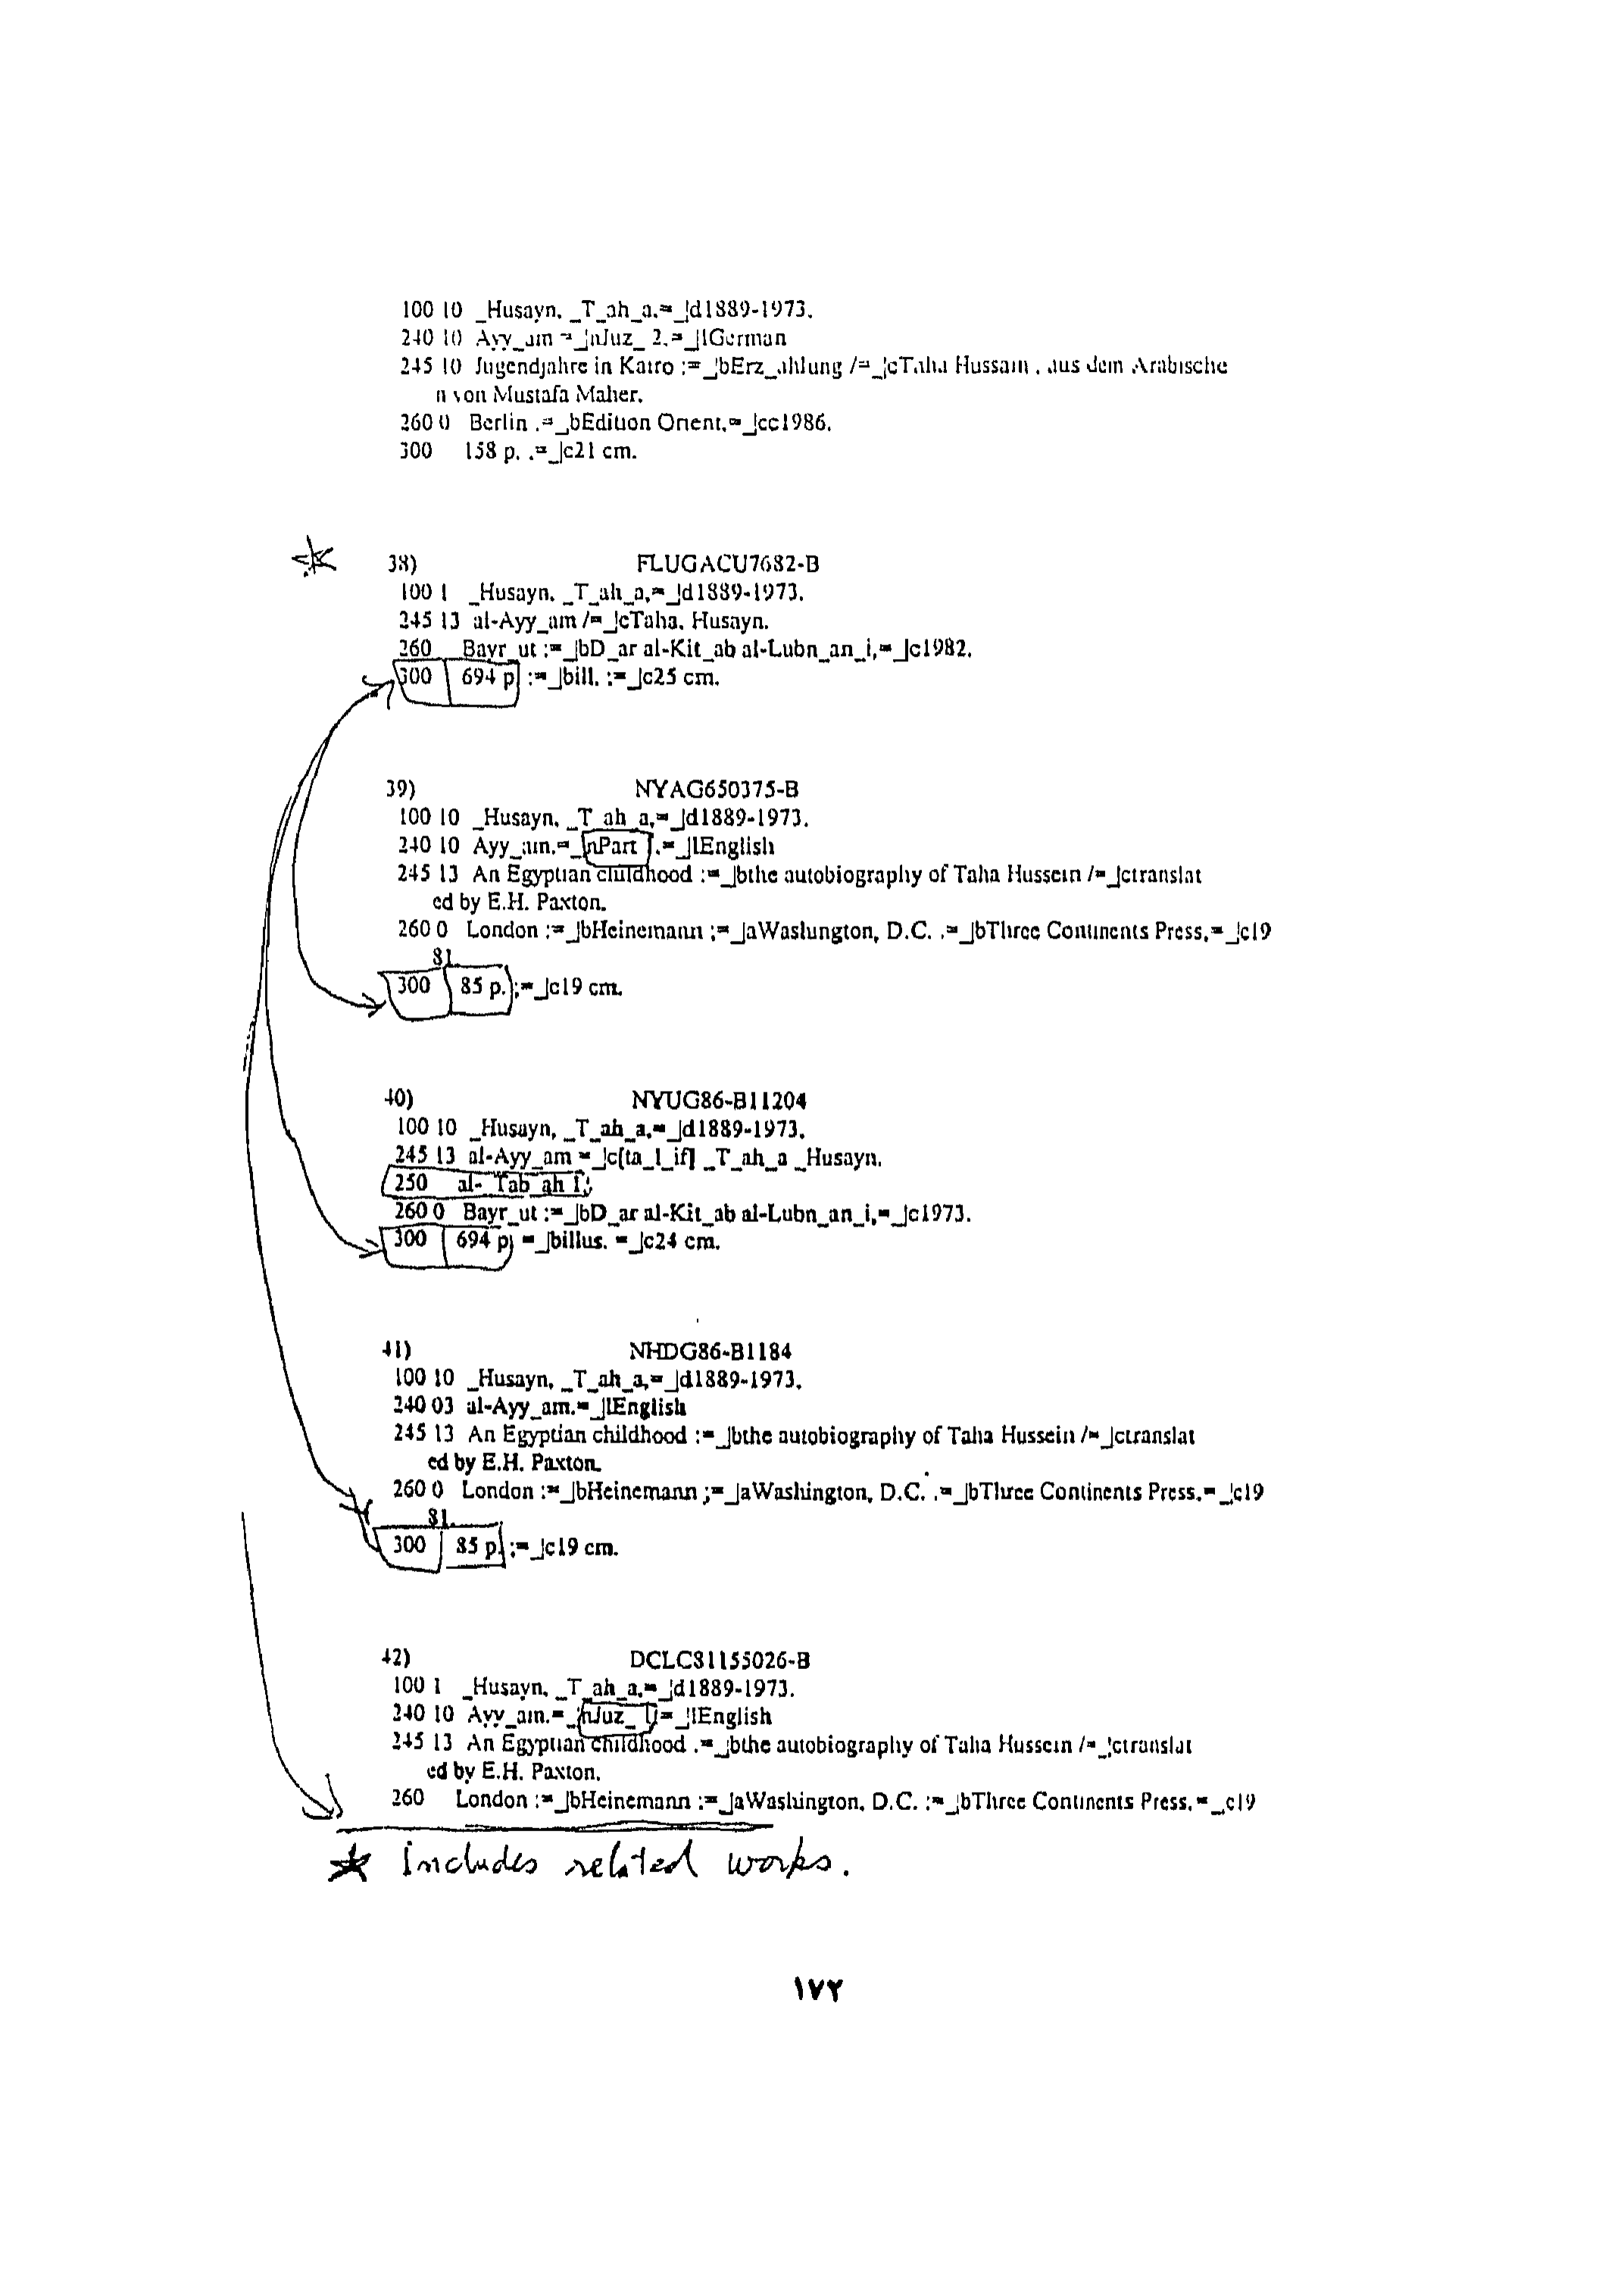 100 10 _Husayn, _T_ah_a,=_|d1889-1973.
240 10 Ayy_am =_|nJuz_ 2.=_|lGerman
245 10 Jugendjahre in Kairo :=_|bErz_ahlung /=_|cTaha Hussain , aus dem Arabische
n von Mustafa Maher.
260 0 Berlin :=_|bEdition Orient,=_|cc1986.
300 158 p. ;=_|c21 cm.
38) FLUGACU7682-B
100 1 _Husayn, _T_ah_a,=_|d1889-1973.
245 13 al-Ayy_am /=_|cTaha, Husayn.
260 Bayr_ut :=_|bD_ar al-Kit_ab al-Lubn_an_i,=_|c1982.
300 694 p :=_|bill. :=_|c25 cm.
39) NYAG650375-B
100 10 _Husayn, _T_ah_a,=_|d1889-1973.
240 10 Ayy_am.=_|nPart 1.=_|lEnglish
245 13 An Egyptian childhood :=_|bthe autobiography of Taha Hussein /=_|ctranslat
ed by E.H. Paxton.
260 0 London :=_|bHeinemann ;=_|aWashington, D.C. :=_|bThree Continents Press,=_|c19
81.
300 85 p. ;=_|c19 cm.
40) NYUG86-B11204
100 10 _Husayn, _T_ah_a,=_|d1889-1973.
245 13 al-Ayy_am =_|c[ta_l_if] _T_ah_a _Husayn.
250 al-_Tab_ah 1.
260 0 Bayr_ut :=_|bD_ar al-Kit_ab al-Lubn_an_i,=_|c1973.
300 694 p =_|billus. =_|c24 cm.
41) NHDG86-B1184
100 10 _Husayn, _T_ah_a,=_|d1889-1973.
240 03 al-Ayy_am.=_|lEnglish
245 13 An Egyptian childhood :=_|bthe autobiography of Taha Hussein /=_|ctranslat
ed by E.H. Paxton.
260 0 London :=_|bHeinemann ;=_|aWashington, D.C. :=_|bThree Continents Press,=_|c19
81.
300 85 p. ;=_|c19 cm.
42) DCLC81155026-B
100 1 _Husayn, _T_ah_a,=_|d1889-1973.
240 10 Ayy_am.=_|nJuz_ 1.=_|lEnglish
245 13 An Egyptian childhood :=_|bthe autobiography of Taha Hussein /=_|ctranslat
ed by E.H. Paxton.
260 London :=_|bHeinemann ;=_|aWashington, D.C. :=_|bThree Continents Press,=_|c19
★ includes related works.
١٧٢